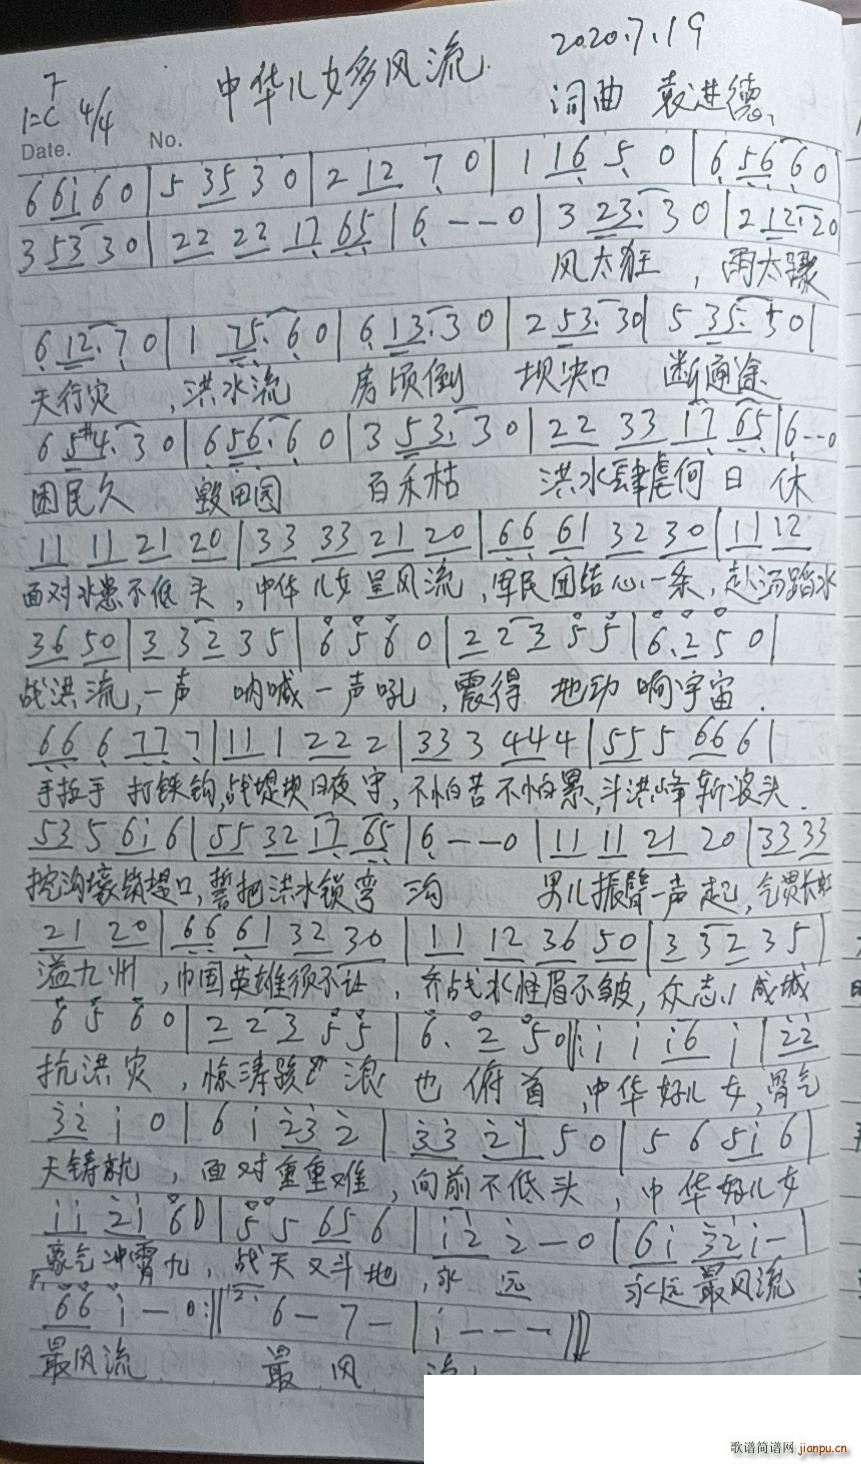 中华儿女多风流.
2020.7.19
1=C 4/4
词曲 袁进德
Date. No.
6 6i 6 0 | 5 35 3 0 | 2 12 7 0 | 1 16 5 0 | 6 56 6 0
3 53 3 0 | 22 22 17 65 | 6 - - 0 | 3 23. 3 0 | 2 12. 20
风太狂 , 雨太骤
6 12. 7 0 | 1 75. 6 0 | 6 13. 3 0 | 2 53. 30 | 5 35. 50 |
天行灾 , 洪水流 房顷倒 坝决口 断通途
6 5#4. 3 0 | 656. 6 0 | 3 53. 30 | 22 33 17 65 | 6--0
困民久 毁田园 百禾枯 洪水肆虐何日休
11 11 21 20 | 33 33 21 20 | 66 61 32 30 | 11 12
面对水患不低头 , 中华儿女呈风流 , 军民团结心一条 , 赴汤蹈水
36 50 | 3 3 2 3 5 | 6 5 6 0 | 2 2 3 5 5 | 6. 2 5 0 |
战洪流, 一声 呐喊一声吼 , 震得 地动 啊宇宙 .
66 6 77 7 | 11 1 22 2 | 33 3 44 4 | 55 5 66 6 |
手拉手 打铁钩, 战堤坝日夜守, 不怕苦不怕累, 斗洪峰斩波头 .
53 5 6i 6 | 55 32 17 65 | 6 - - - 0 | 11 11 21 20 | 33 33
挖沟壕锁堤口, 誓把洪水锁弯沟 男儿振臂一声起, 气贯长虹
21 20 | 66 61 32 30 | 11 12 36 50 | 3 3 2 3 5 |
溢九州 , 巾国英雄须不让 , 齐战水怪眉不皱, 众志成城
6 5 6 0 | 2 2 3 5 5 | 6. 2 50 ||: i i i6 i | 22
抗洪灾 , 惊涛骇浪 也俯首 , 中华好儿女, 骨气
32 i 0 | 6 i 23 2 | 33 21 5 0 | 5 6 5i 6 |
天铸就 , 面对重重难 , 向前不低头 , 中华好儿女
ii 2i 60 | 5 5 65 6 | i2 2 - 0 | 6i 32 i - |
豪气冲霄九 , 战天又斗地 , 永远 永远最风流
66 i - 0 :|| 12. 6 - 7 - | i - - - |||
最风流 最 风
歌谱简谱网 jianpu.cn